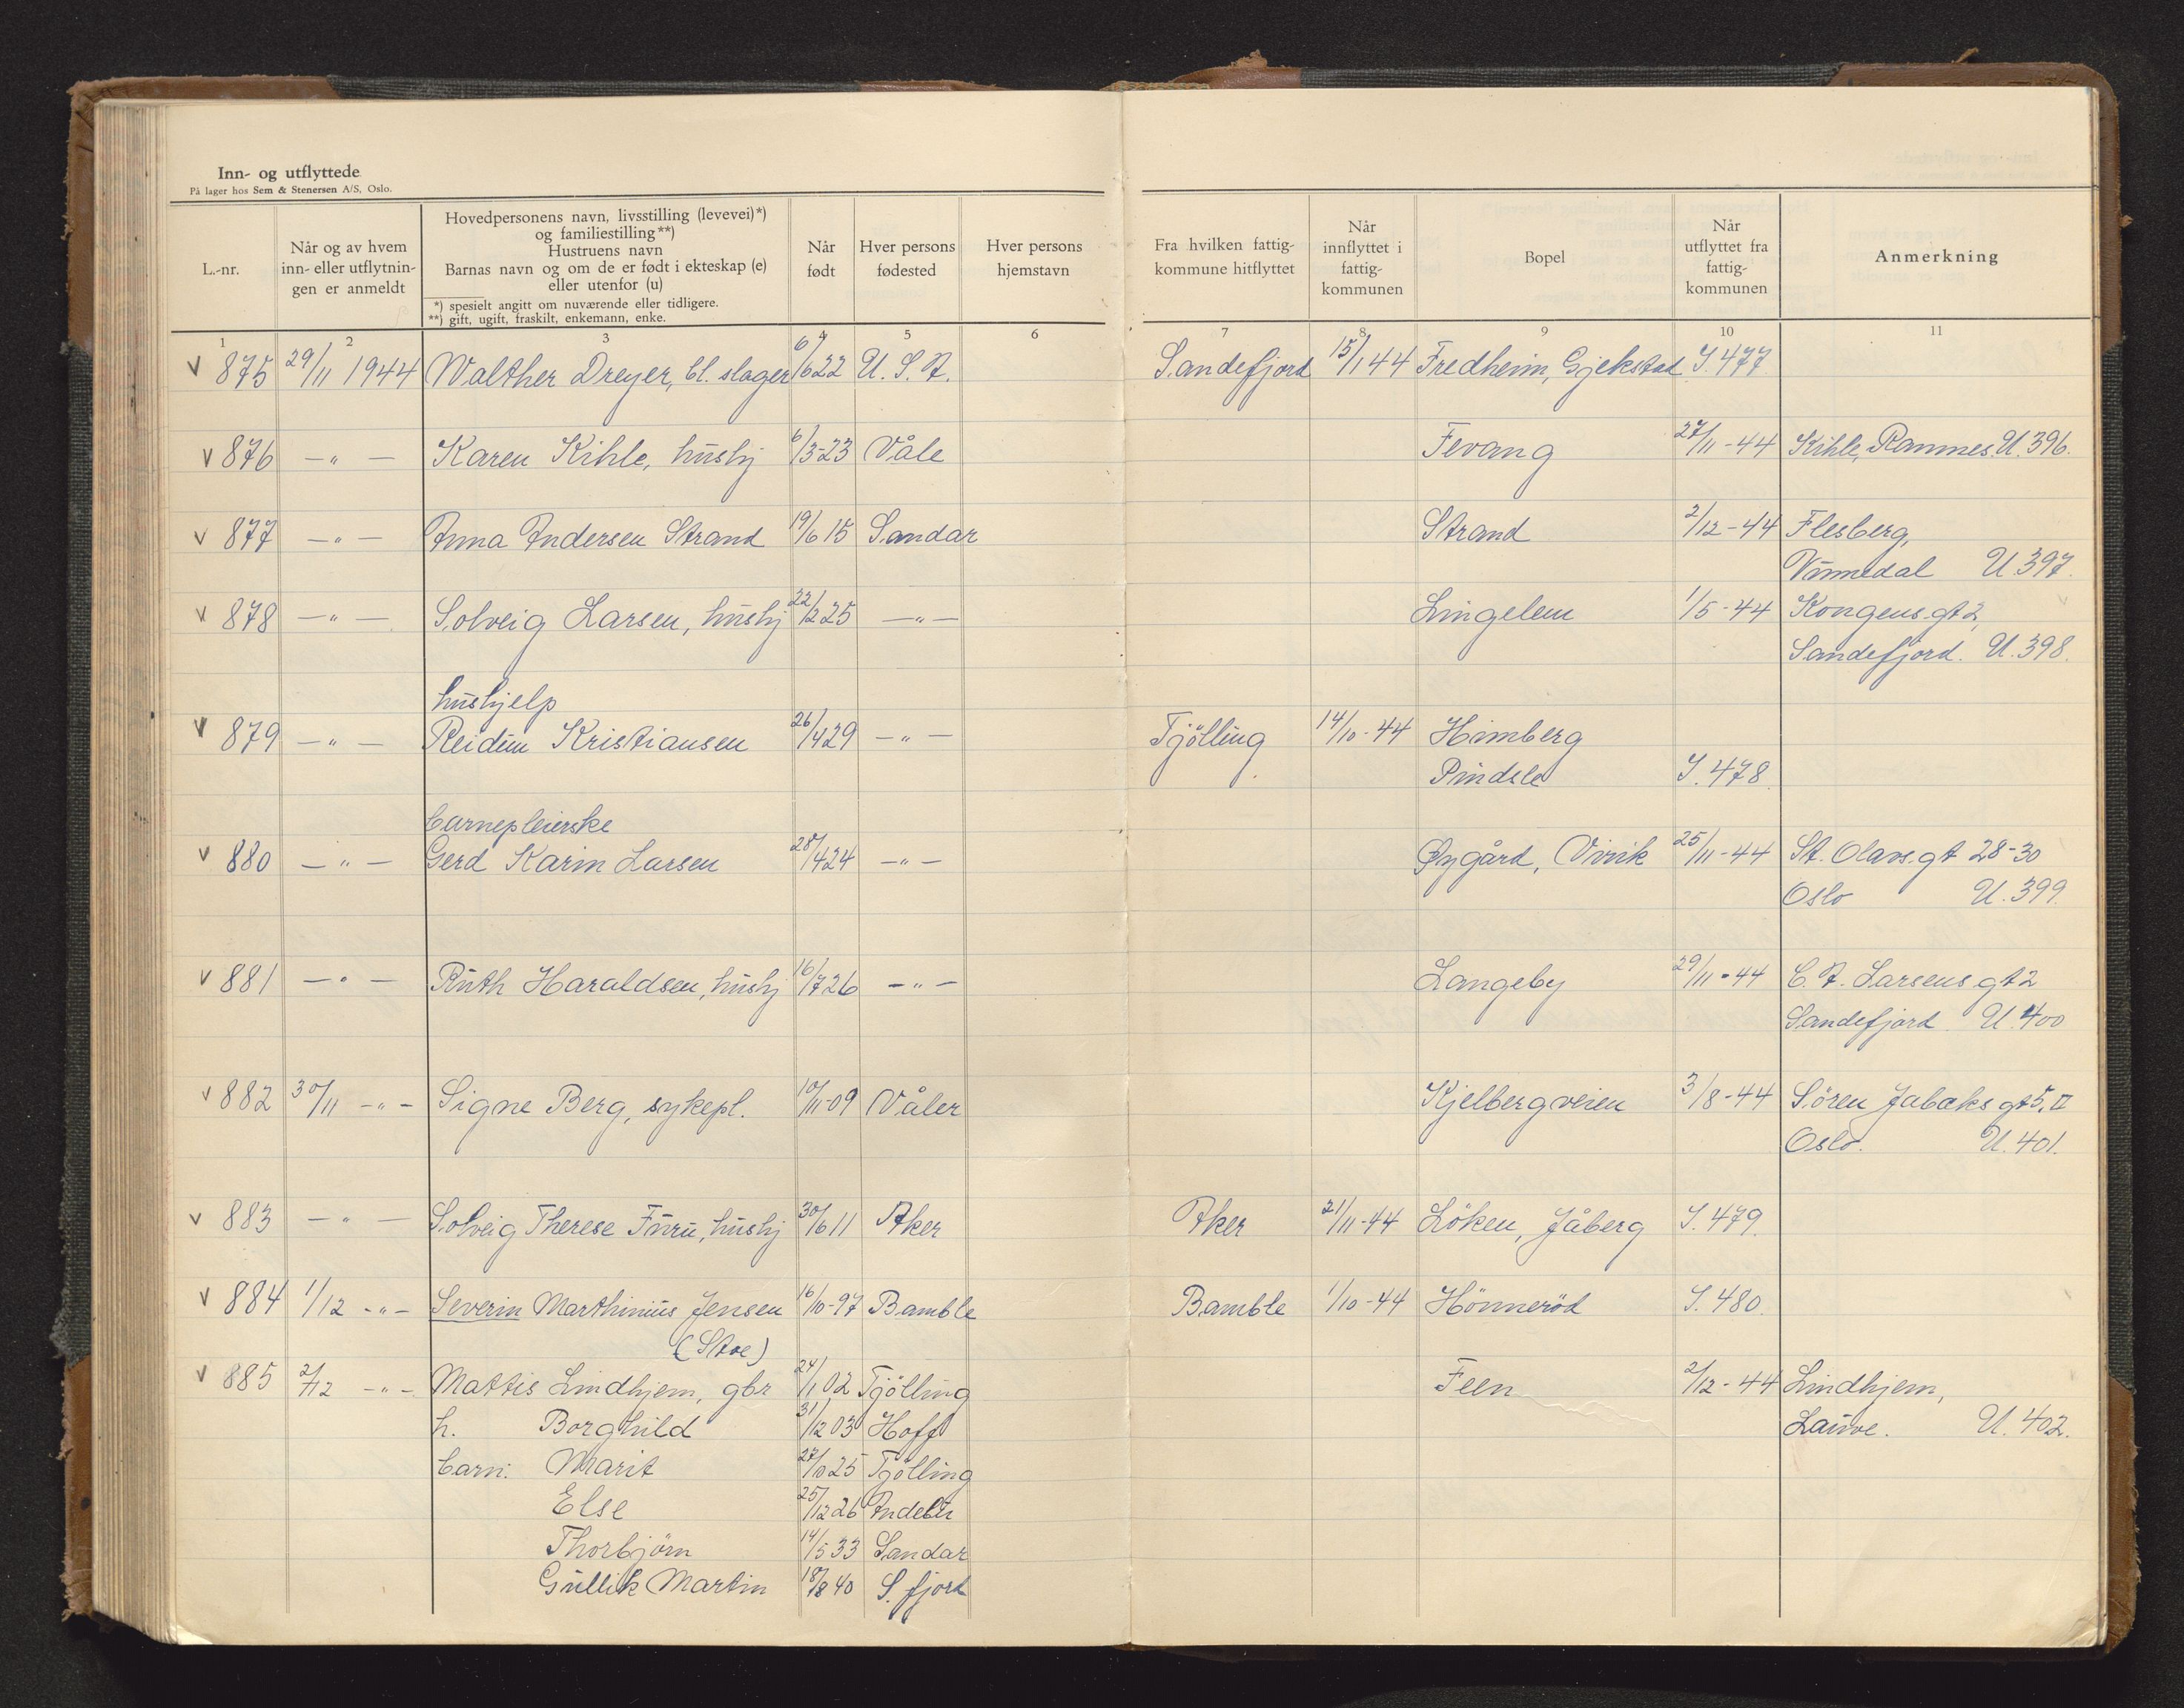 Inn- og utflyttede
På lager hos Sem & Stenersen A/S, Oslo.
L.-nr.
Når og av hvem
inn- eller utflytnin-
gen er anmeldt
Hovedpersonens navn, livsstilling (levevei)*)
og familiestilling**)
Hustruens navn
Barnas navn og om de er født i ekteskap (e)
eller utenfor (u)
*) spesielt angitt om nuværende eller tidligere.
**) gift, ugift, fraskilt, enkemann, enke.
Når
født
Hver persons
fødested
Hver persons
hjemstavn
Fra hvilken fattig-
kommune hitflyttet
Når
innflyttet i
fattig-
kommunen
Bopel
Når
utflyttet fra
fattig-
kommunen
Anmerkning
1 2 3 4 5 6 7 8 9 10 11
v 875 29/11 1944 Walther Dreyer, bl. slager 6/6 22 U. S. A. Sandefjord 15/1 44 Fredheim, Gjekstad I. 477
v 876 —„— Karen Kihle, hushj 6/3-23 Våle Fevang 27/11-44 Kihle, Ramnes. U. 396.
v 877 —„— Anna Andersen Strand 19/6 15 Sandar Strand 2/12-44 Flesberg,
Vinnedal U. 397.
v 878 —„— Solveig Larsen, hushj 22/2 25 —„— Lingelem 1/5-44 Kongens gt 2,
Sandefjord. U. 398.
hushjelp
v 879 —„— Reidun Kristiansen 26/4 29 —„— Tjölling 14/10-44 Himberg
Pindsle I. 478.
barnepleierske
v 880 —„— Gerd Karin Larsen 28/4 24 —„— Øygård, Virik 25/11-44 St. Olavs.gt 28-30
Oslo U. 399.
v 881 —„— Ruth Haraldsen, hushj 16/7 26 —„— Langeby 29/11-44 C. A. Larsens gt 2
Sandefjord U. 400
v 882 30/11 -„- Signe Berg, sykepl. 10/11-09 Våler Kjelbergveien 3/8-44 Sören Jabæks gt 5, II
Oslo. U. 401.
v 883 —„— Solveig Therese Furu, hushj 30/6 11 Aker Aker 21/11-44 Löken, Jåberg I. 479.
v 884 1/12 -„- Severin Marthinius Jensen 16/10-97 Bamble Bamble 1/10-44 Hönneröd I. 480.
(Stoe)
v 885 2/12 -„- Mattis Lindhjem, gbr 24/1 02 Tjölling Feen 2/12-44 Lindhjem,
h. Borghild 31/12 03 Hoff Lauve. U. 402.
barn: Marit 27/10 25 Tjölling
Else 25/12 26 Andebu
Thorbjörn 14/5 33 Sandar
Gullik Martin 18/8 40 S. fjord